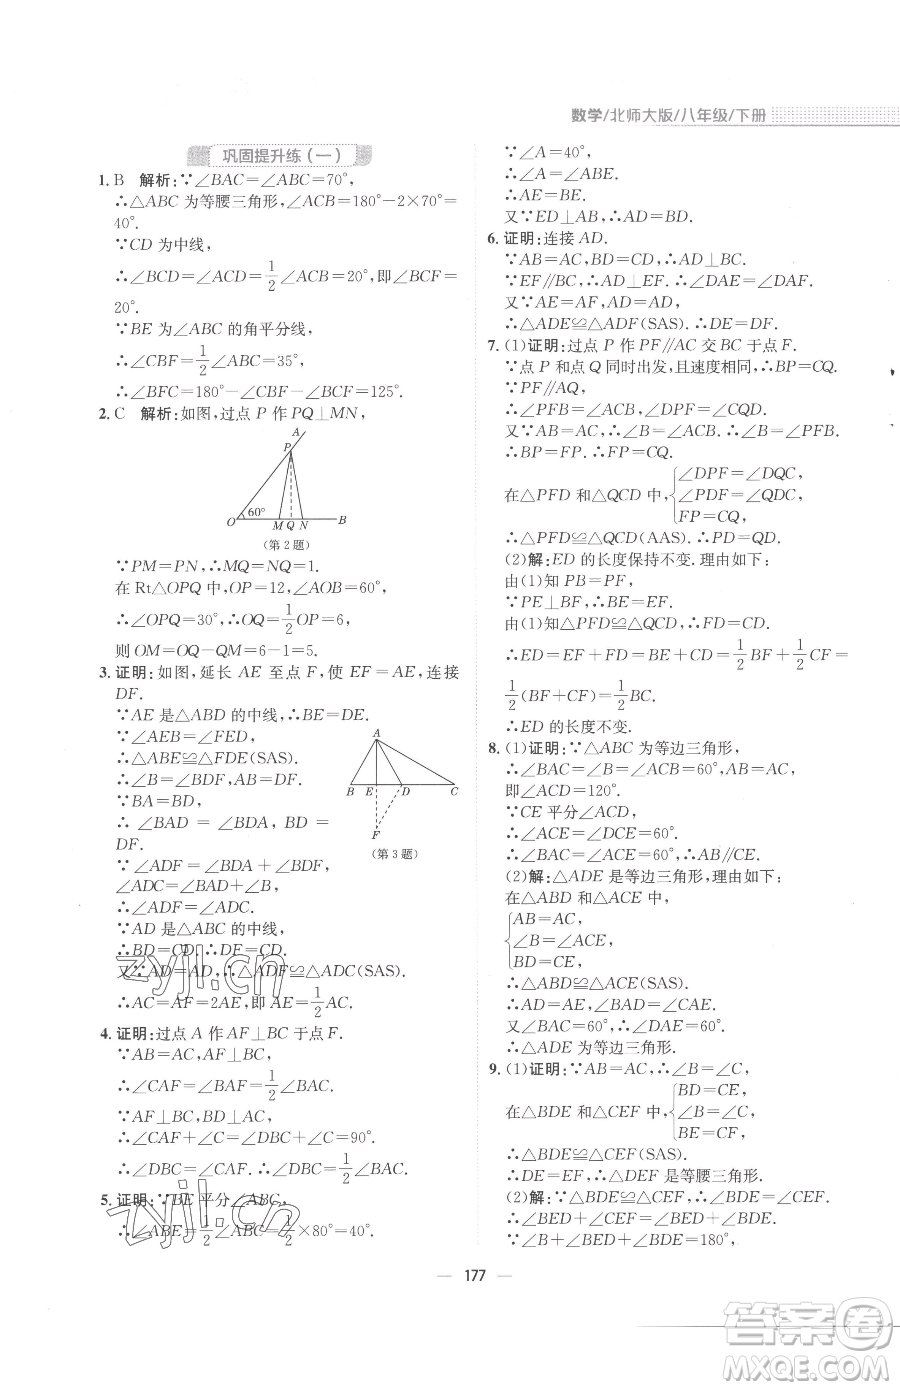 数学/北师大版/八年级/下册
巩固提升练(一)
1. B 解析:∵∠BAC=∠ABC=70°,
∴△ABC 为等腰三角形,∠ACB=180°-2×70°=
40°.
∵CD 为中线,
∴∠BCD=∠ACD=1/2∠ACB=20°,即∠BCF=
20°.
∵BE 为∠ABC 的角平分线,
∴∠CBF=1/2∠ABC=35°,
∴∠BFC=180°-∠CBF-∠BCF=125°.
2. C 解析:如图,过点 P 作 PQ⊥MN,
A
P
60°
O M Q N B
(第 2 题)
∵PM=PN,∴MQ=NQ=1.
在 Rt△OPQ 中,OP=12,∠AOB=60°,
∴∠OPQ=30°,∴OQ=1/2OP=6,
则 OM=OQ-QM=6-1=5.
3. 证明:如图,延长 AE 至点 F,使 EF=AE,连接
DF.
∵AE 是△ABD 的中线,∴BE=DE.
∵∠AEB=∠FED,
∴△ABE≌△FDE(SAS).
∴∠B=∠BDF,AB=DF.
∵BA=BD,
∴∠BAD=∠BDA,BD=
DF.
∵∠ADF=∠BDA+∠BDF,
∠ADC=∠BAD+∠B,
∴∠ADF=∠ADC.
A
B E D C
F
(第 3 题)
∵AD 是△ABC 的中线,
∴BD=CD.∴DF=CD.
又∵AD=AD,∴△ADF≌△ADC(SAS).
∴AC=AF=2AE,即 AE=1/2AC.
4. 证明:过点 A 作 AF⊥BC 于点 F.
∵AB=AC,AF⊥BC,
∴∠CAF=∠BAF=1/2∠BAC.
∵AF⊥BC,BD⊥AC,
∴∠CAF+∠C=∠DBC+∠C=90°.
∴∠DBC=∠CAF.∴∠DBC=1/2∠BAC.
5. 证明:∵BE 平分∠ABC,
∴∠ABE=1/2∠ABC=1/2×80°=40°.
∵∠A=40°,
∴∠A=∠ABE.
∴AE=BE.
又∵ED⊥AB,∴AD=BD.
6. 证明:连接 AD.
∵AB=AC,BD=CD,∴AD⊥BC.
∵EF∥BC,∴AD⊥EF.∴∠DAE=∠DAF.
又∵AE=AF,AD=AD,
∴△ADE≌△ADF(SAS).∴DE=DF.
7. (1)证明:过点 P 作 PF∥AC 交 BC 于点 F.
∵点 P 和点 Q 同时出发,且速度相同,∴BP=CQ.
∵PF∥AQ,
∴∠PFB=∠ACB,∠DPF=∠DQC.
又∵AB=AC,∴∠B=∠ACB.∴∠B=∠PFB.
∴BP=FP.∴FP=CQ.
在△PFD 和△QCD 中,{∠DPF=∠DQC,
∠PDF=∠QDC,
FP=CQ,
∴△PFD≌△QCD(AAS).∴PD=QD.
(2)解:ED 的长度保持不变.理由如下:
由(1)知 PB=PF,
∵PE⊥BF,∴BE=EF.
由(1)知△PFD≌△QCD,∴FD=CD.
∴ED=EF+FD=BE+CD=1/2BF+1/2CF=
1/2(BF+CF)=1/2BC.
∴ED 的长度不变.
8. (1)证明:∵△ABC 为等边三角形,
∴∠BAC=∠B=∠ACB=60°,AB=AC,
即∠ACD=120°.
∵CE 平分∠ACD,
∴∠ACE=∠DCE=60°.
∴∠BAC=∠ACE=60°.∴AB∥CE.
(2)解:△ADE 是等边三角形,理由如下:
在△ABD 和△ACE 中,
{AB=AC,
∠B=∠ACE,
BD=CE,
∴△ABD≌△ACE(SAS).
∴AD=AE,∠BAD=∠CAE.
又∠BAC=60°,∴∠DAE=60°.
∴△ADE 为等边三角形.
9. (1)证明:∵AB=AC,∴∠B=∠C,
在△BDE 和△CEF 中,{BD=CE,
∠B=∠C,
BE=CF,
∴△BDE≌△CEF(SAS).
∴DE=EF,∴△DEF 是等腰三角形.
(2)解:∵△BDE≌△CEF,∴∠BDE=∠CEF.
∴∠BED+∠CEF=∠BED+∠BDE.
∵∠B+∠BED+∠BDE=180°,
177
zyjl.cn
zyjl.cn
答案圈
MXQE.COM